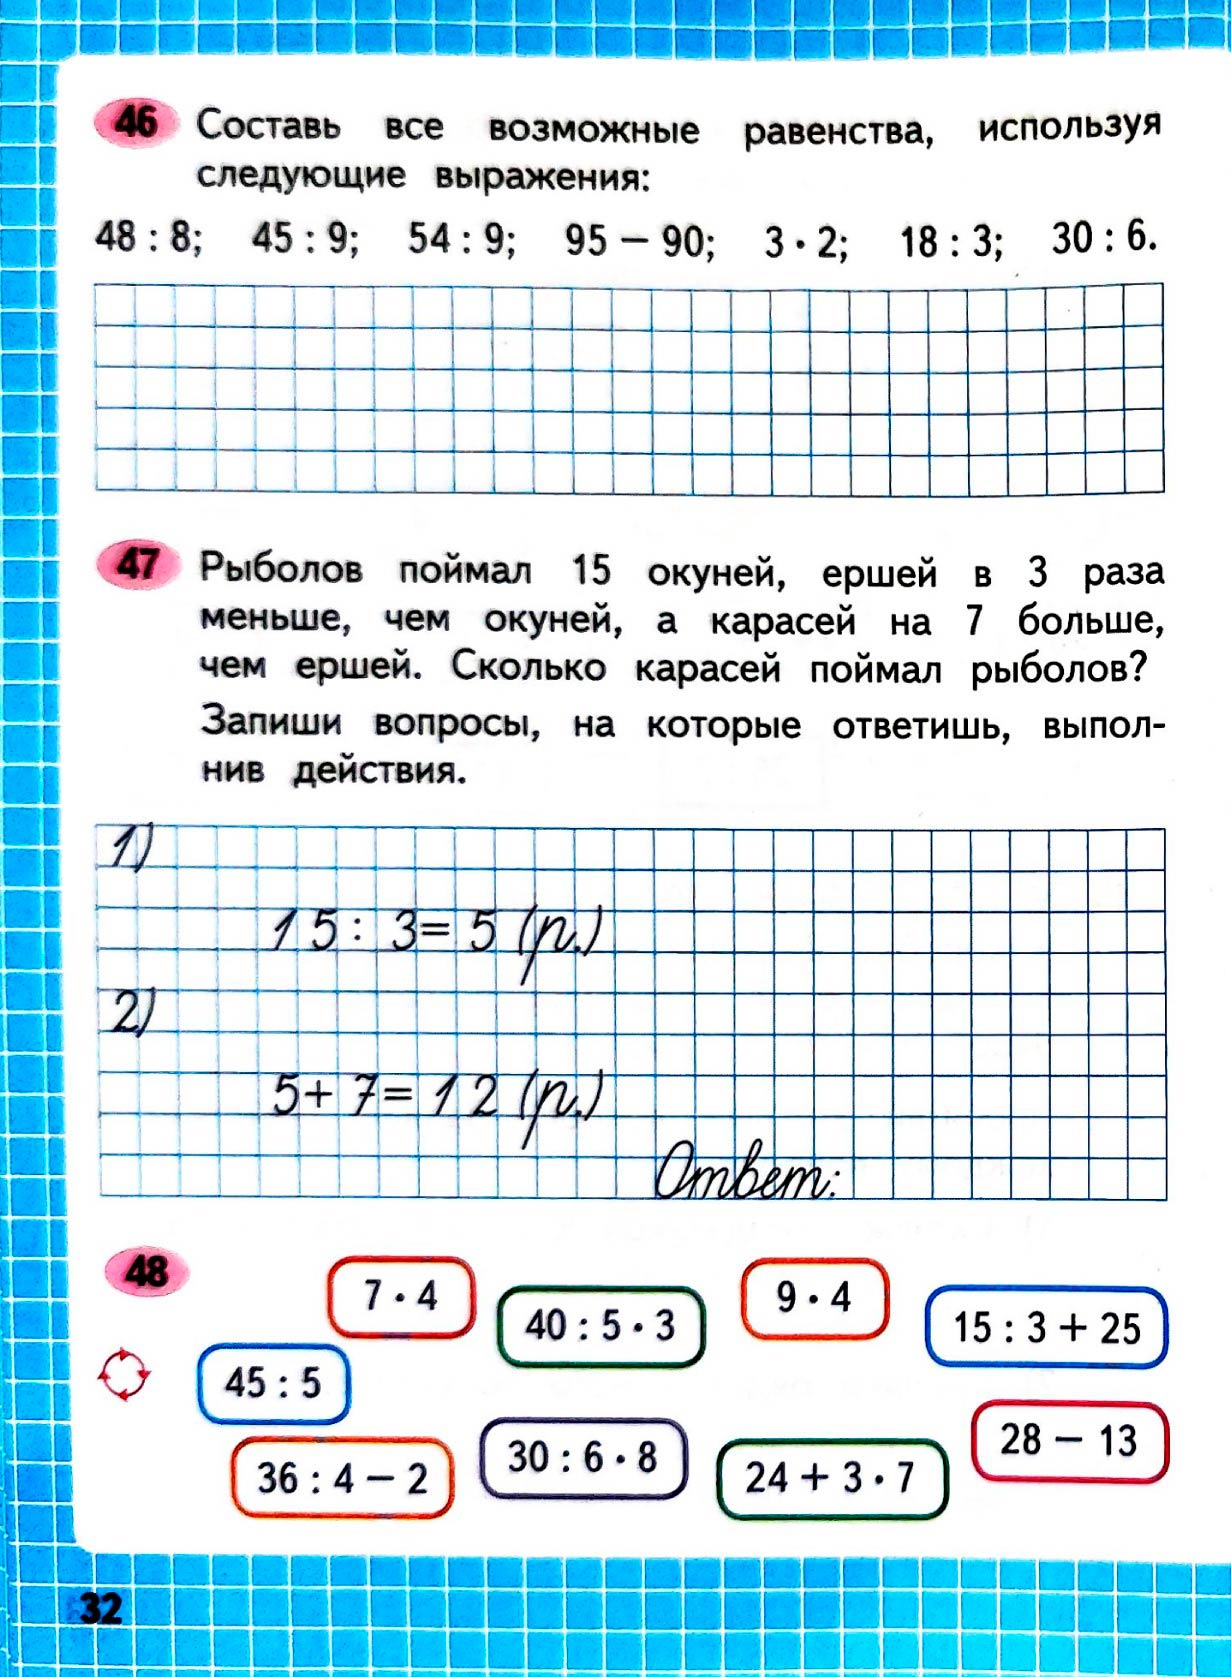 46 Составь все возможные равенства, используя
следующие выражения:
48 : 8; 45 : 9; 54 : 9; 95 − 90; 3 · 2; 18 : 3; 30 : 6.
47 Рыболов поймал 15 окуней, ершей в 3 раза
меньше, чем окуней, а карасей на 7 больше,
чем ершей. Сколько карасей поймал рыболов?
Запиши вопросы, на которые ответишь, выпол-
нив действия.
1)
15 : 3 = 5 (р.)
2)
5 + 7 = 12 (р.)
Ответ:
48
7 · 4
40 : 5 · 3
9 · 4
15 : 3 + 25
45 : 5
36 : 4 − 2
30 : 6 · 8
24 + 3 · 7
28 − 13
32